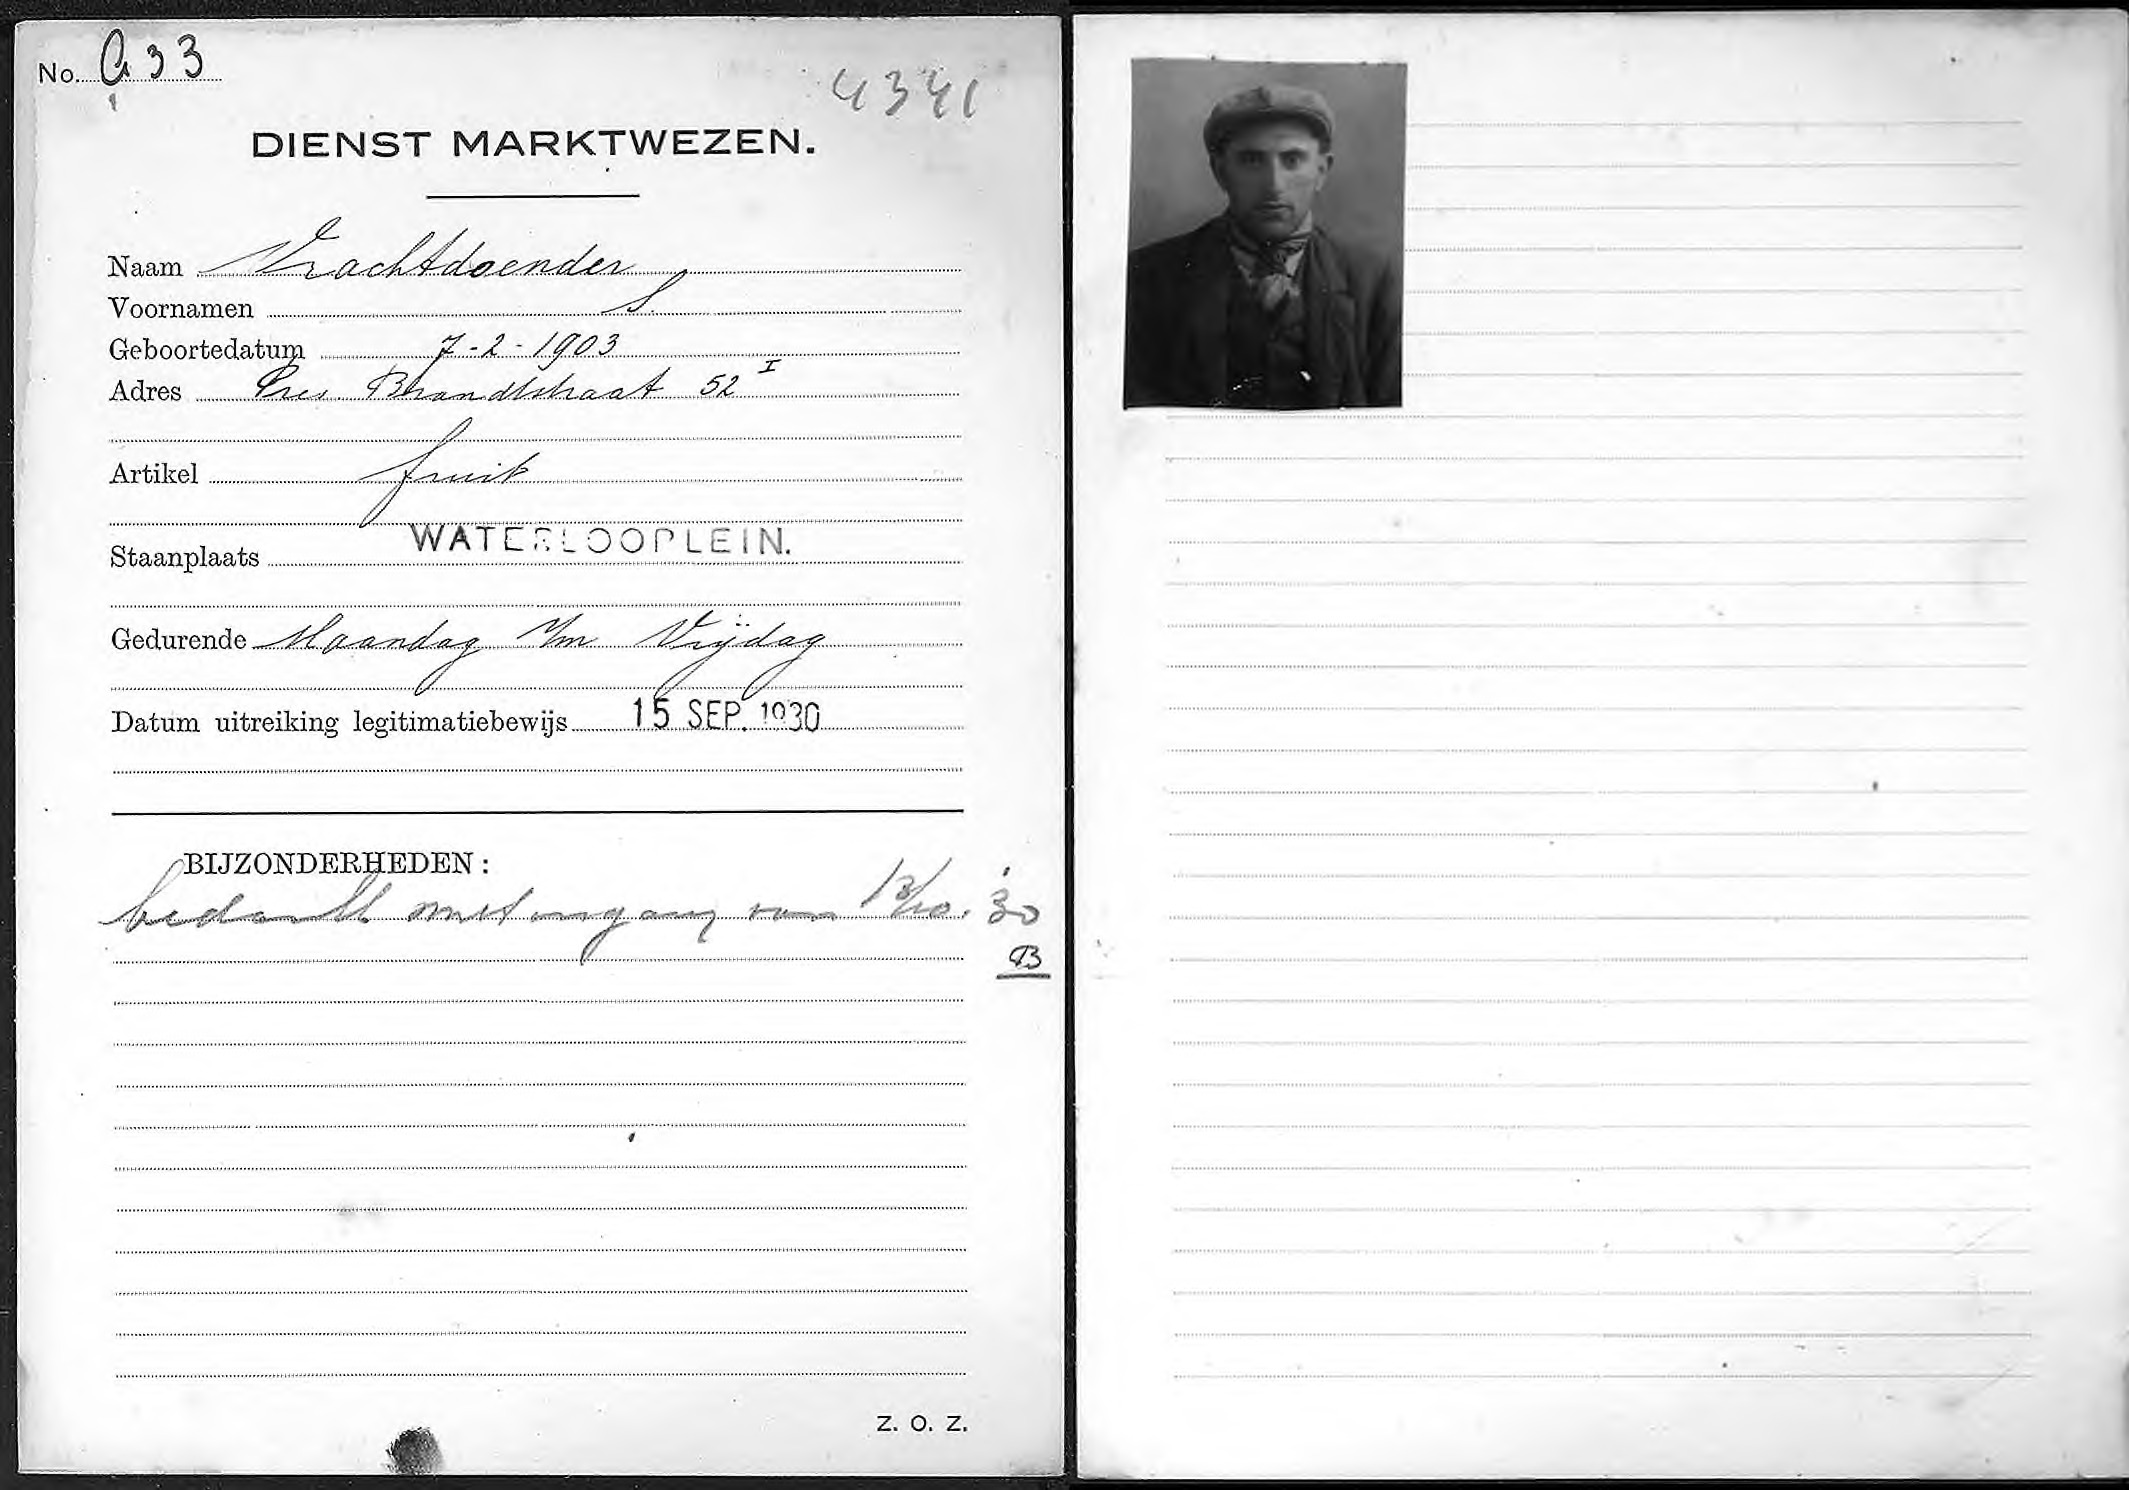 No. G 33
4341
DIENST MARKTWEZEN.
Naam Vrachtdoender
Voornamen S.
Geboortedatum 7-2-1903
Adres Pres. Brandtstraat 52 I
Artikel fruit
Staanplaats WATERLOOPLEIN.
Gedurende Maandag t/m Vrijdag
Datum uitreiking legitimatiebewijs 15 SEP. 1930
BIJZONDERHEDEN:
bedankt met ingang van 13/10. '30
B
Z. O. Z.